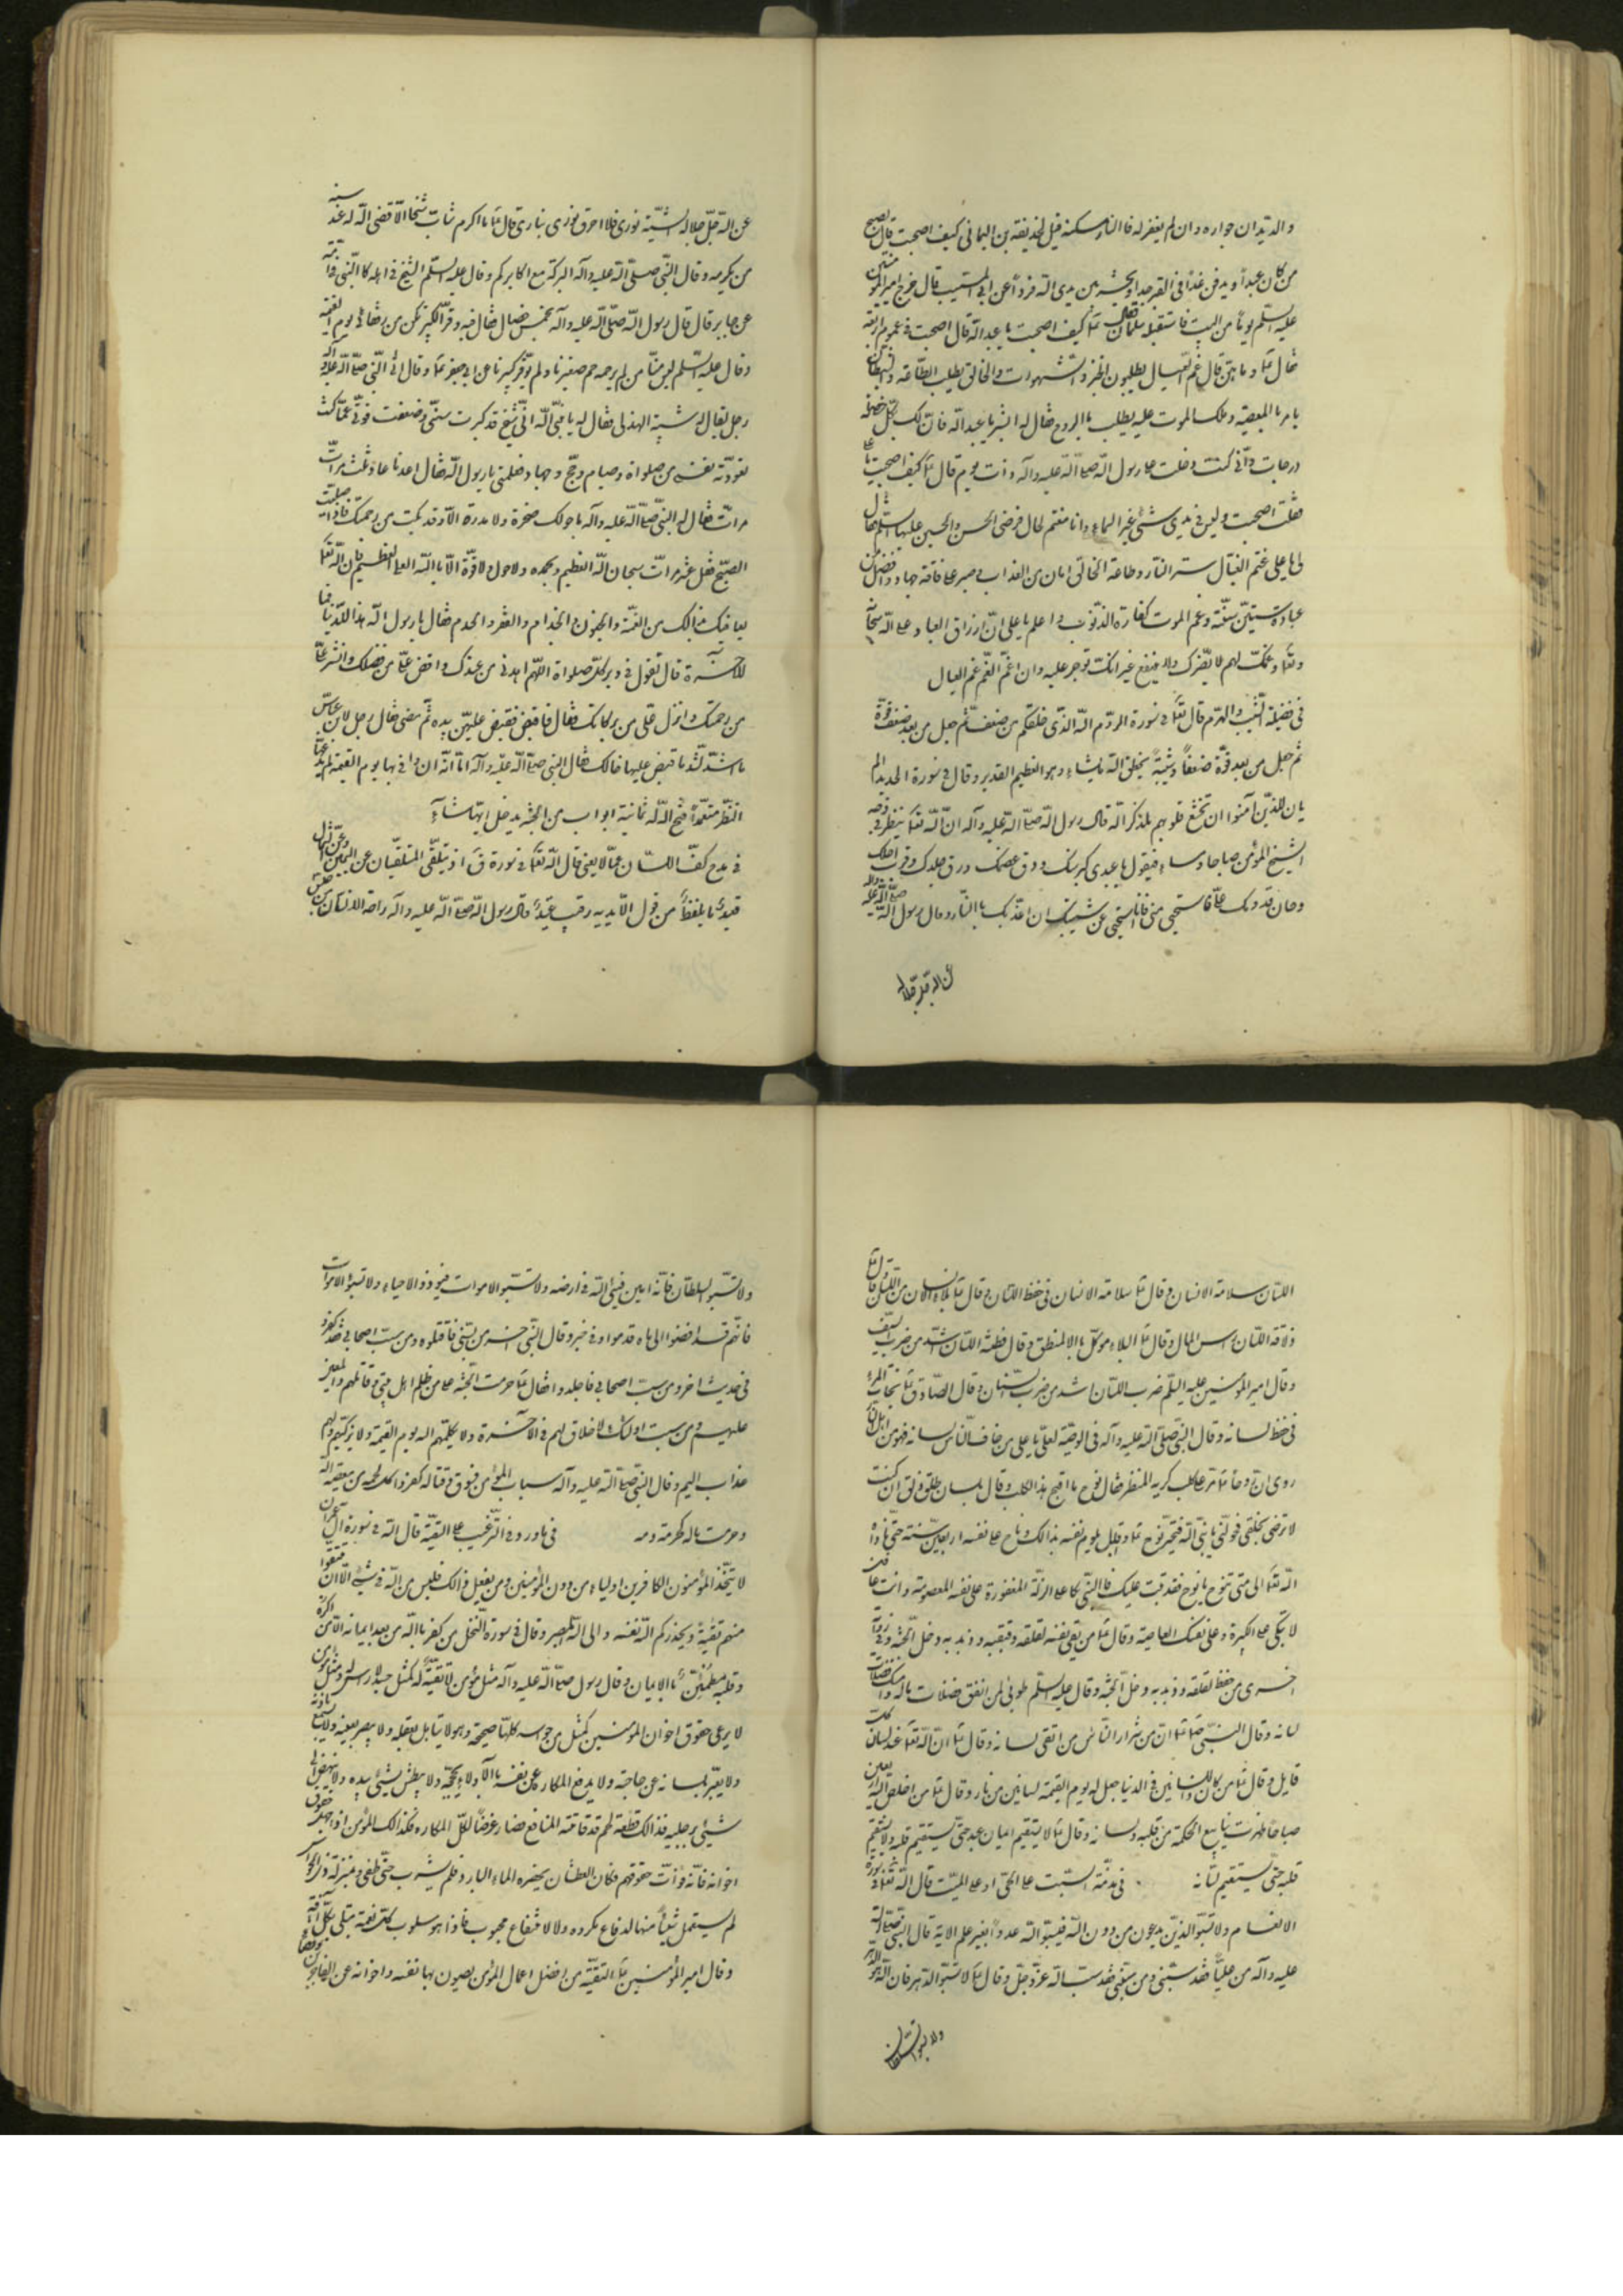 والديدان جواره وان لم يغفر له فالنار مسكنه قيل لحذيفة بن اليماني كيف اصبحت قال يصبح
من كان عبداً ويدفن غداً في القبر وحداً ويحشر بين يدي الله فرداً عن ابن المسيب قال خرج امير المؤمنين
عليه السلم يوماً من البيت فاستقبله سلمان فقال له كيف اصبحت يا عبد الله قال اصبحت في غموم اربعة
فقال له وما هن قال غم العيال يطلبون الخبز والشهوات والخالق يطلب الطاعة والشيطان
يامر بالمعصية وملك الموت عليه يطلب بالروح فقال له ابشر يا عبد الله فان لك بكل خصلة
درجات واني كنت دخلت على رسول الله صلى الله عليه وآله ذات يوم قال كيف اصبحت يا علي
فقلت اصبحت وليس في يدي شئ غير الماء وانا مغتم لحال فرخي الحسن والحسين عليهما السلم فقال
لي يا علي غم العيال ستر النار وطاعة الخالق امان من العذاب وصبر على فاقة جهاد وافضل من
عبادة ستين سنة وغم الموت كفارة الذنوب واعلم يا علي ان ارزاق العباد على الله سبحانه
وتعالى وغمك لهم لا يضرك ولا ينفع غير انك توجر عليه وان اغم الغم غم العيال
في فضيلة الشيب والهرم قال تعالى في سورة الروم الله الذي خلقكم من ضعف ثم جعل من بعد ضعف قوة
ثم جعل من بعد قوة ضعفاً وشيبة يخلق الله ما يشاء وهو العظيم القدير وقال في سورة الحديد الم
يان للذين آمنوا ان تخشع قلوبهم لذكر الله قال رسول الله صلى الله عليه وآله ان الله تعالى ينظر في وجه
الشيخ المؤمن صباحا ومساء فيقول يا عبدي كبر سنك ودق عظمك ورق جلدك وقرب اجلك
وحان قدومك علي فاستحي مني فانا استحي عن شيبتك ان اعذبك بالنار وقال رسول الله صلى الله عليه وآله
عن الله جل جلاله
عن الله جل جلاله الشيبة نوري فلا احرق نوري بناري قال ما اكرم شاب شيخا الا قضى الله له عند سنه
من يكرمه وقال النبي صلى الله عليه وآله البركة مع اكابركم وقال عليه السلم الشيخ في اهله كالنبي في امته
عن جابر قال قال رسول الله صلى الله عليه وآله بخمس خصال فقال فيه وقر الكبير تكن من رفقائي يوم القيمة
وقال عليه السلم ليس منا من لم يرحم صغيرنا ولم يوقر كبيرنا عن ابي جعفر وقال اتى النبي صلى الله عليه وآله
رجل يقال له شيبة الهذلي فقال له يا نبي الله اني شيخ قد كبرت سني وضعفت قوتي عما كنت
تعودته نفسي من صلواة وصيام وحج وجهاد فعلمني يا رسول الله فقال اعدها فاعاد ثلث مرات
مرات فقال له النبي صلى الله عليه وآله ما حولك صخرة ولا مدرة الا وقد بكت من رحمتك فاذا صليت
الصبح فقل عشر مرات سبحان الله العظيم وبحمده ولا حول ولا قوة الا بالله العلي العظيم فان الله تعالى
يعافيك بذالك من العمى والجنون والجذام والفقر والهدم فقال يا رسول الله هذا للدنيا فما
للآخرة قال تقول في دبر كل صلواة اللهم اهدني من عندك وافض علي من فضلك وانشر علي
من رحمتك وانزل علي من بركاتك فقال فاقبض فقبض عليهن بيده ثم مضى فقال رجل لابن عباس
ما اشد ما قبض عليها خالك فقال النبي صلى الله عليه وآله اما انه ان وافى بها يوم القيمة لم يدعها
متعمداً فتح الله له ثمانية ابواب من الجنة يدخل ايها شاء
في مدح كف اللسان عما لا يعني قال الله تعالى في سورة ق اذ يتلقى المتلقيان عن اليمين وعن الشمال
قعيد ما يلفظ من قول الا لديه رقيب عتيد قال رسول الله صلى الله عليه وآله راحة الانسان في حفظ
اللسان سلامة الانسان وقال سلامة الانسان في حفظ اللسان وقال بلاء الانسان من اللسان وقال
ذلاقة اللسان راس المال وقال البلاء موكل بالمنطق وقال فطنة اللسان اشد من ضرب السيف
وقال امير المؤمنين عليه السلم ضرب اللسان اشد من ضرب السنان وقال الصادق نجاة المرء
في حفظ لسانه وقال النبي صلى الله عليه وآله في الوصية لعلي يا علي من خاف الناس لسانه فهو من اهل النار
روى ان نوحا مر على كلب كريه المنظر فقال نوح ما اقبح هذا الكلب وقال بلسان طلق ذلق ان كنت
لا ترضى بخلقي فحولني يا نبي الله فتحير نوح واقبل يلوم نفسه بذالك وناح على نفسه اربعين سنة حتى ناداه
الله تعالى الى متى تنوح يا نوح فقد تبت عليك
لا تبكي على الكبيرة وعلى نفسك العاصية وقال من يقي نفسه لقلقه وقبقبه وذبذبه دخل الجنة وفي رواية
اخرى من حفظ لقلقه وذبذبه دخل الجنة وقال عليه السلم طوبى لمن انفق فضلات ماله وامسك فضلات
لسانه وقال النبي ان من شرار الناس من اتقى لسانه وقال ان الله تعالى عند لسان كل
قايل وقال من كان ذا لسانين في الدنيا جعل له يوم القيمة لسانين من نار وقال من اخلص لله اربعين
صباحا ظهرت ينابيع الحكمة من قلبه ولسانه وقال لا يستقيم ايمان عبد حتى يستقيم قلبه ولا يستقيم
قلبه حتى يستقيم لسانه في مذمة السبت على الحي او على الميت قال الله تعالى في سورة
الانعام ولا تسبوا الذين يدعون من دون الله فيسبوا الله عدواً بغير علم الاية قال النبي صلى الله
عليه وآله من سب علياً فقد سبني ومن سبني فقد سب الله عز وجل وقال لا تسبوا الدهر فان الله هو الدهر
ولا تسبوا السلطان
ولا تسبوا السلطان فانه امين فيئ الله في ارضه ولا تسبوا الاموات فيؤذوا الاحياء ولا تسبوا الاموات
فانهم قد افضوا الى ما قدموا وفي خبر وقال النبي اخرى من سبني فاقتلوه ومن سب اصحابي فقد كفر و
في حديث اخر ومن سب اصحابي فاجلدوا فقال حرمت الجنة على من ظلم اهل بيتي وقاتلهم والمعين
عليهم ومن سب اولئك لا خلاق لهم في الآخرة ولا يكلمهم الله يوم القيمة ولا يزكيهم ولهم
عذاب اليم وقال النبي صلى الله عليه وآله سباب المؤمن فسوق وقتاله كفر واكل لحمه من معصية الله
وحرمت ماله كحرمة دمه فيما ورد في الترغيب على التقية قال الله في سورة آل عمران
لا يتخذ المؤمنون الكافرين اولياء من دون المؤمنين ومن يفعل ذالك فليس من الله في شئ الا ان تتقوا
منهم تقية ويحذركم الله نفسه والى الله المصير وقال في سورة النحل من كفر بالله من بعد ايمانه الا من اكره
وقلبه مطمئن بالايمان وقال رسول صلى الله عليه وآله مثل مؤمن لا تقية له كمثل جسد لا راس له ومثل مؤمن
لا يرعى حقوق اخوان المؤمنين كمثل من حواسه كلها صحيحة وهو لا يتامل بعقله ولا يبصر بعينه ولا يسمع باذنه
ولا يعبر بلسانه عن حاجته ولا يدفع المكاره عن نفسه بالادلاء بحجته ولا يبطش بشئ بيده ولا ينهض الى
شئ برجليه فذالك قطعة لحم قد فاتته المنافع فصار غرضاً لكل المكاره فكذالك المؤمن اذا جهل حقوق
اخوانه فانه فوات حقوقهم فكان العطشان يحضره الماء البارد فلم يشرب حتى طفى وبمنزلة ذي الحواس
لم يستعمل شيئا منها لدفاع مكروه ولا لانتفاع محبوب فاذا هو مسلوب كل نعمة مبتلى بكل آفة
وقال امير المؤمنين التقية من افضل اعمال المؤمن يصون بها نفسه واخوانه عن الفاجرين